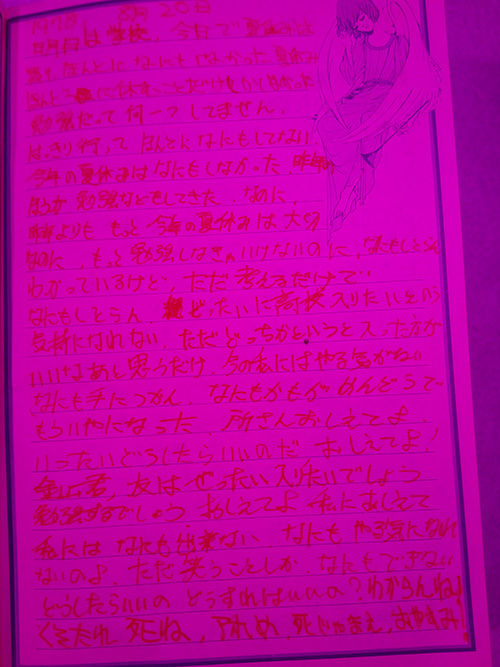 1978 8月20日
明日は学校、今日で夏休みは
終り、ほんとになにもしなかった夏休み
勉強だって何一つしてません、
はっきり行って ほんとになにもしてない
今年の夏休みはなにもしなかった、昨年の
ほうが勉強などをしてきた、なのに、
昨年よりも もっと 今年の夏休みは大切
なのに、もっと勉強しなきゃいけないのに、なにもしとらん
わかっているけど、ただ考えるだけで
なにもしとらん、ぜったいに高校入りたいという
気持になれない、ただどっちかというと入った方が
いいなあと思うだけ、今の私にはやる気がねい
なにも手につかん、なにもかもがめんどうで
もういやになった、所さんおしえてよ、
いったいどうしたらいいのだ、おしえてよ!
君、友はぜったい入りたいでしょう
勉強するでしょう おしえてよ 私におしえて
私には なにも出来ない なにも やる気になれ
ないのよ、ただ笑うことしか、なにもできない
どうしたらいいの どうすればいいの?わからんね!
くそたれ 死ね、アホめ、死じゃまえ、おやすみ!